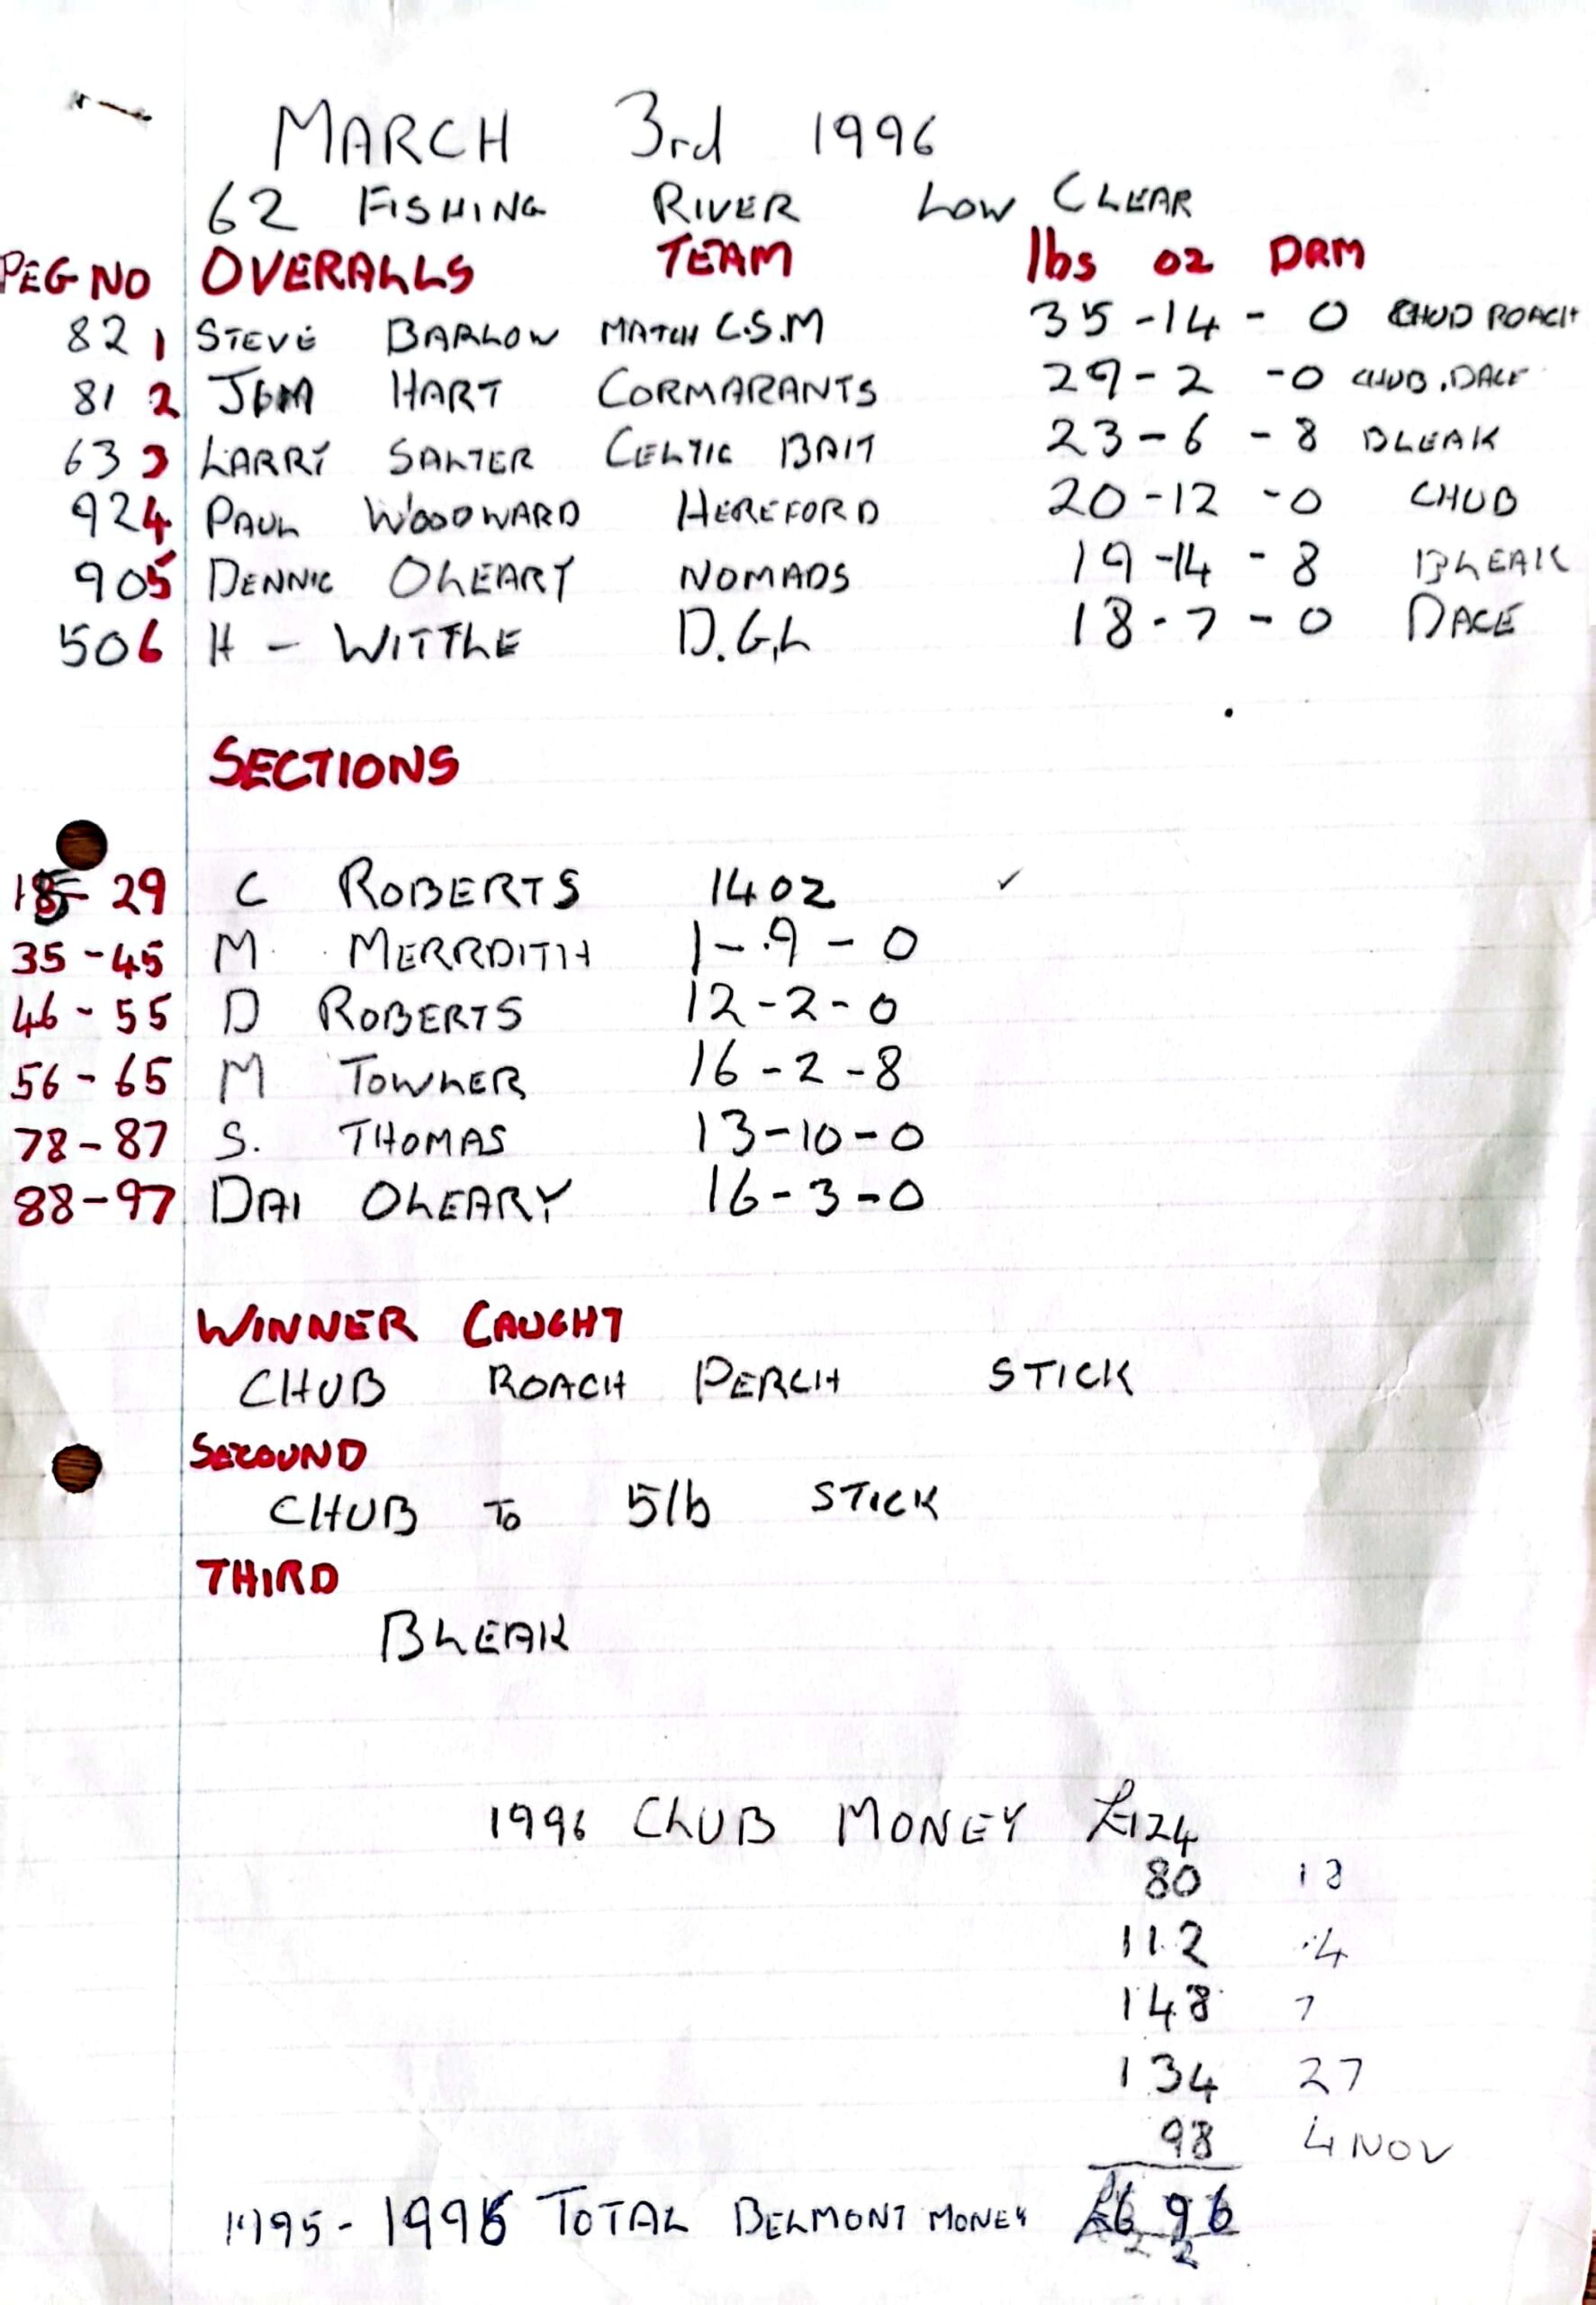 MARCH 3rd 1996
62 FISHING RIVER LOW CLEAR
PEG NO OVERALLS TEAM lbs oz DRM
82 1 STEVE BARLOW MATCH C.S.M 35-14-0 CHUB ROACH
81 2 JIM HART CORMARANTS 29-2-0 CHUB.DACE
63 3 LARRY SALTER CELTIC BAIT 23-6-8 BLEAK
92 4 PAUL WOODWARD HEREFORD 20-12-0 CHUB
90 5 DENNIC OLEARY NOMADS 19-14-8 BLEAK
50 6 H - WITTLE D.G.L 18-7-0 DACE
SECTIONS
15-29 C ROBERTS 14oz ✓
35-45 M MERRDITH 1-9-0
46-55 D ROBERTS 12-2-0
56-65 M TOWLER 16-2-8
78-87 S. THOMAS 13-10-0
88-97 DAI OLEARY 16-3-0
WINNER CAUGHT
CHUB ROACH PERCH STICK
SECOUND
CHUB To 5lb STICK
THIRD
BLEAK
1996 CLUB MONEY £124
80 18
112 4
148 7
134 27
98 4 NOV
1995-1996 TOTAL BELMONT MONEY £696
2 2